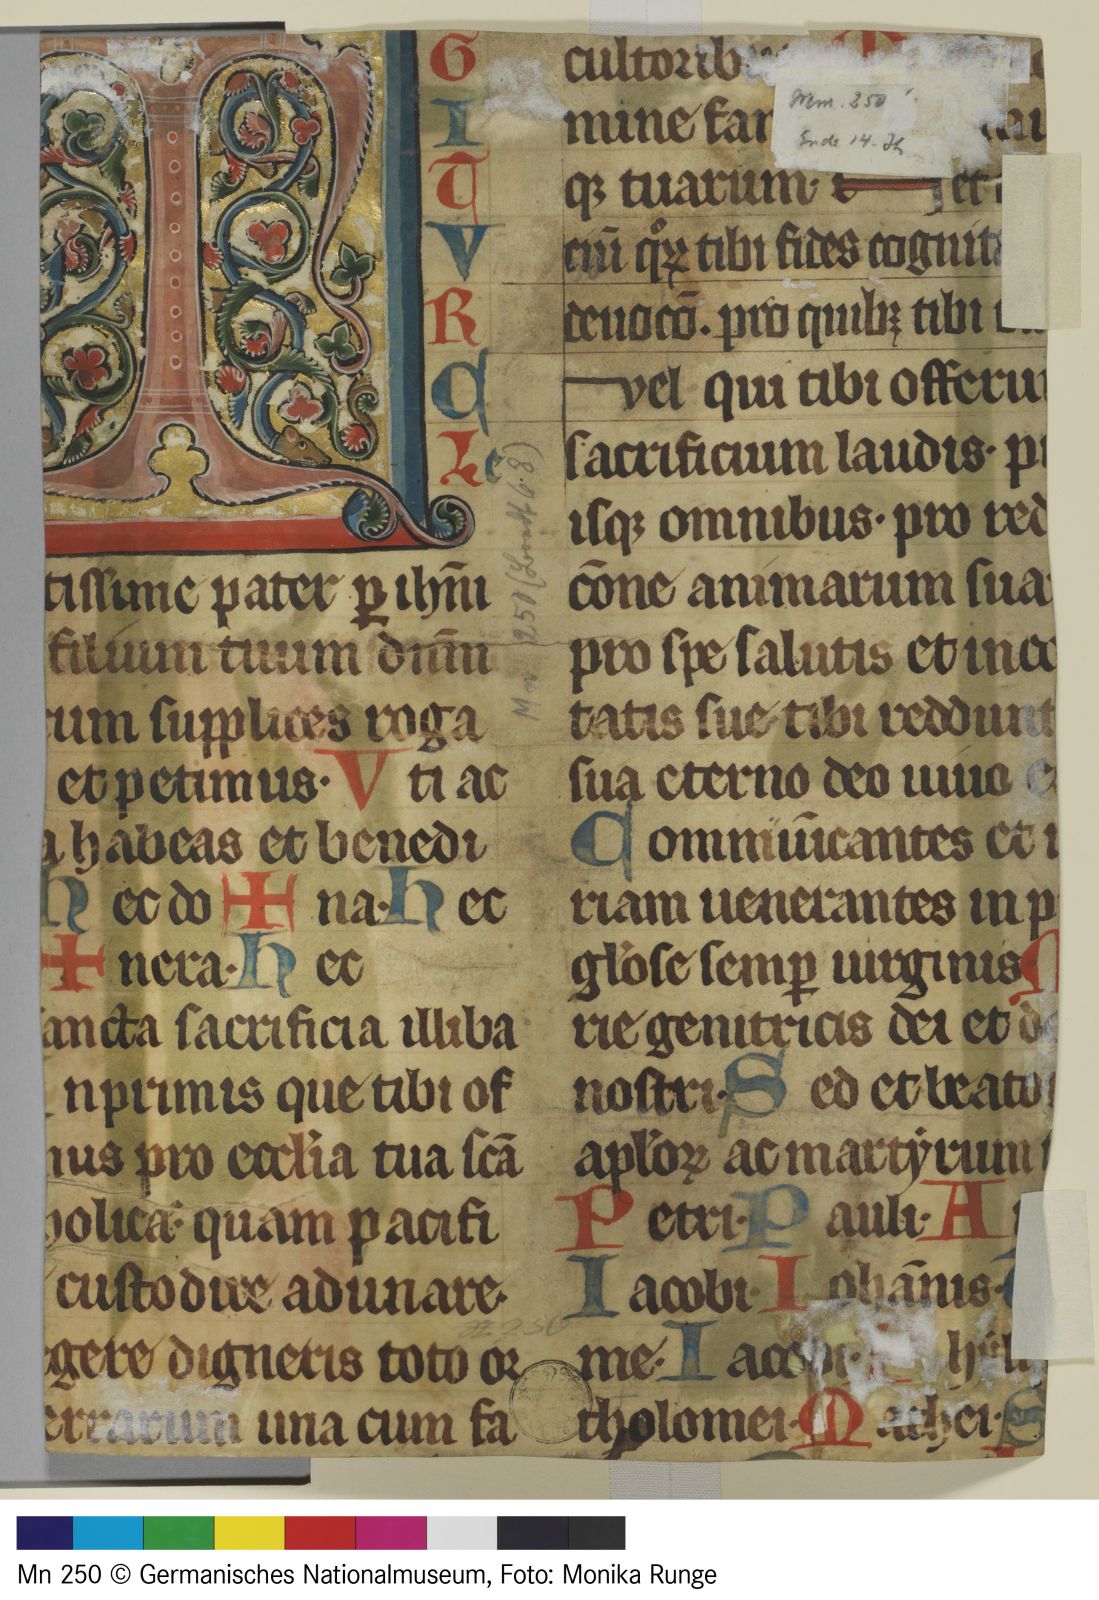 T
G
I
T
V
R
C
L e
tissime pater p̱ ihm̄
filium tuum dn̄m
rum supplices roga
et petimus· V ti ac
a habeas et benedi
h ec do + na· h ec
+ nera· h ec
ancta sacrificia illiba
nprimis que tibi of
mus pro eccl̄ia tua scā
holica· quam pacifi
custodire adunare·
egere digneris toto or
errarum una cum fa
cultorib
mine fa
qꝫ tuarum· et
ciū qͦꝝ tibi fides cognita
deuocō. pro quibꝫ tibi
vel qui tibi offerun
sacrificium laudis· p
isqꝫ omnibus· pro red
cōne animarum sua
pro spe salutis et inco
tatis sue tibi reddunt
sua eterno deo uiuo e
C ommūicantes et
riam uenerantes in p
gl̓ose semp̱ uirginis M
rie genitricis dei et d
nostri· S ed et beato
apl̓oꝝ ac martẏrum
P etri· P auli· A
I acobi· I ohānis·
me· I acobi· hili
tholomei· M athei· S
Mm. 250
Ende 14. Jh.
Mn 250
Mn 250 © Germanisches Nationalmuseum, Foto: Monika Runge